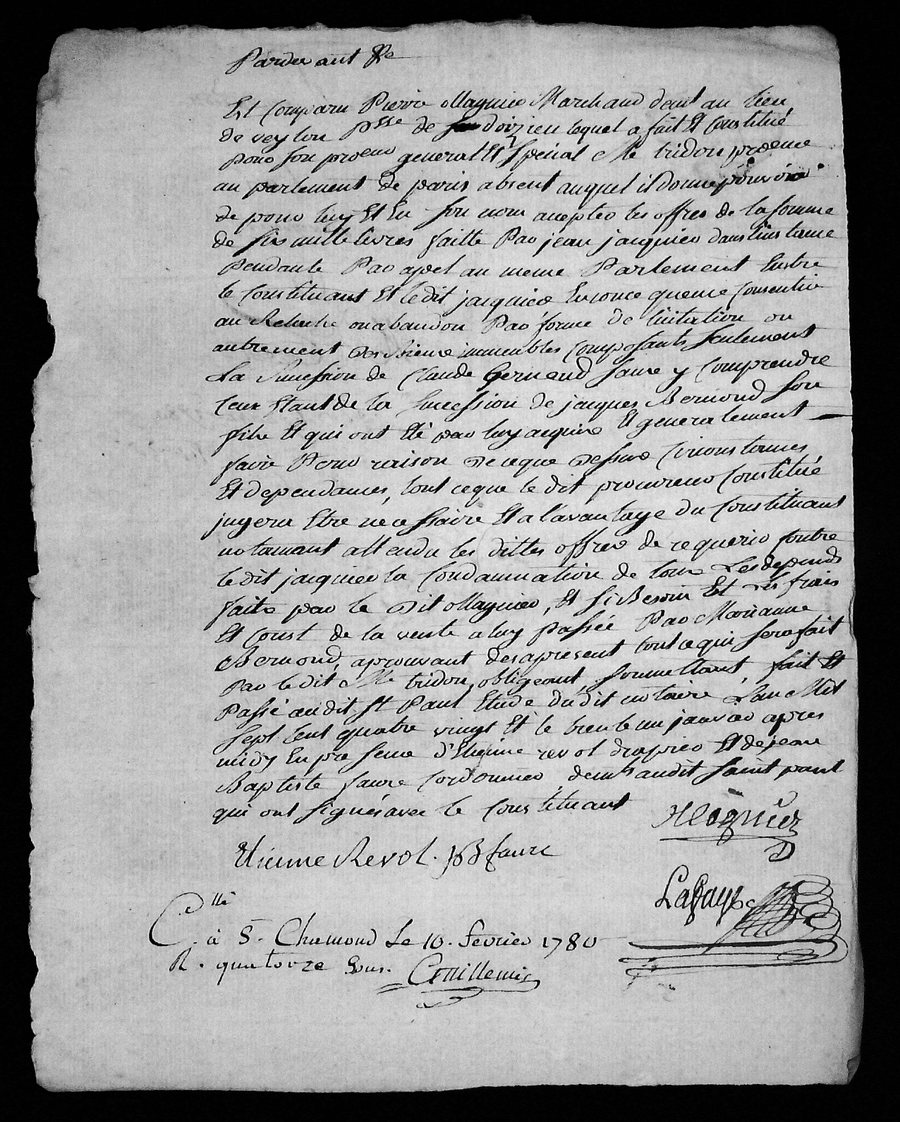 Pardevant &c
Et Comparu Pierre Magnier Marchand demt au lieu
de veylon psse de doizieu lequel a fait Et Constitué
pour son procur general Et Spécial Me tridon procur
au parlement de paris absent auquel il donne pouvoir
de pour luy Et En son nom accepter les offres de la somme
de six mille livres faitte Par jean jacquier dans linstance
Pendante Par apel au meme Parlement Entre
le Constituant Et ledit jacquier En consequence Consentir
au Relache ou abandon Par forme de licitation ou
autrement des Biens immeubles Composants seulement
La Succession de Claude Bernond sans y Comprendre
Ceux Etant de la succession de jacques Bernond son
fils Et qui ont Eté par luy acquis Et generalement
faire Pour raison de ceque dessus Circonstances
Et dependances, tout ceque le dit procureur Constitué
jugera Etre necessaire Et a l'avantage du Constituant
notamant attendu les dittes offres de requerir Contre
le dit jacquier la Condamnation de tous Les depends
faits par le Dit Magnier, Et si Besoin Et Les frais
Et Coust de la vente a luy Passée Par Marianne
Bernond, aprouvant des apresent tout cequi sera fait
Par le dit Me tridon, obligeant soumettant, fait Et
Passé audit St Paul Etude dudit notaire L'an Mil
sept Cent quatre vingt Et le trente un janvier apres
midy En presence d'Etienne revol drapier Et de jean
Baptiste faure Cordonnier demts audit saint paul
qui ont signés avec le Constituant
Magnier
Etienne Revol . JB faure
Lafay
Clle
C. à S. Chamond Le 10. février 1780
R. quatorze sous. Guillemin